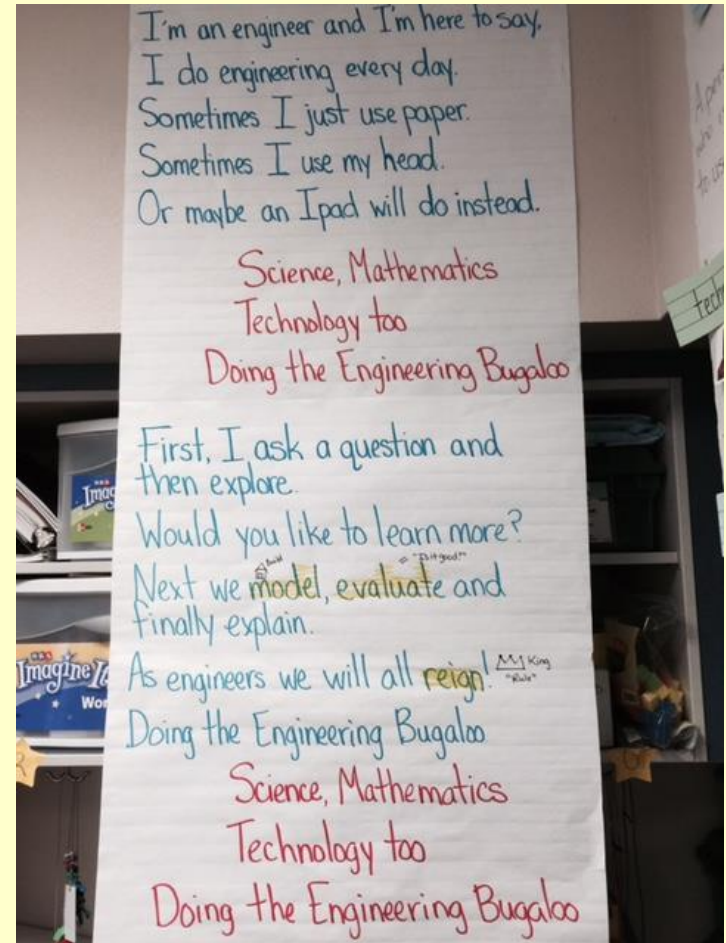 I'm an engineer and I'm here to say,
I do engineering every day.
Sometimes I just use paper.
Sometimes I use my head.
Or maybe an Ipad will do instead.
Science, Mathematics
Technology too
Doing the Engineering Bugaloo
First, I ask a question and
then explore.
Would you like to learn more?
Build
= "Is it good?"
Next we model, evaluate and
finally explain.
As engineers we will all reign!
King
"Rule"
Doing the Engineering Bugaloo
Science, Mathematics
Technology too
Doing the Engineering Bugaloo
Imag
Imagine It
Wor
tech